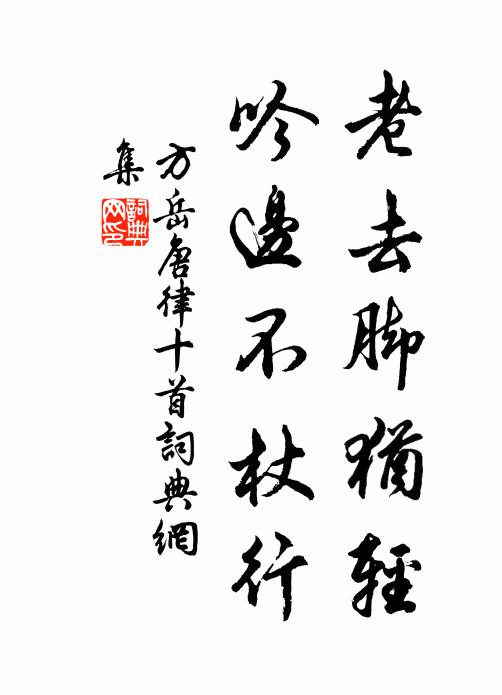 老去脚猶輕
吟邊不杖行
方岳唐律十首詞典網
集
詞典网印